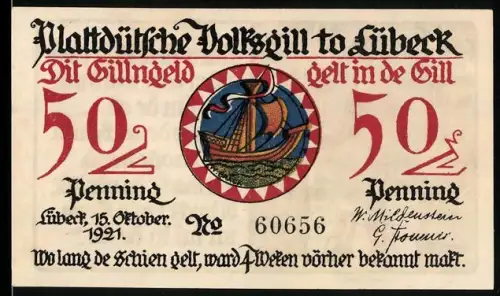 Plattdütsche Volksgill to Lübeck
Dit Gillngeld gelt in de Gill
50 50
Penning Penning
Lübeck, 15. Oktober.
1921.
No 60656
W. Mildenstein
G.
Wo lang de Schien gelt, ward 4 Weken vörher bekannt makt.